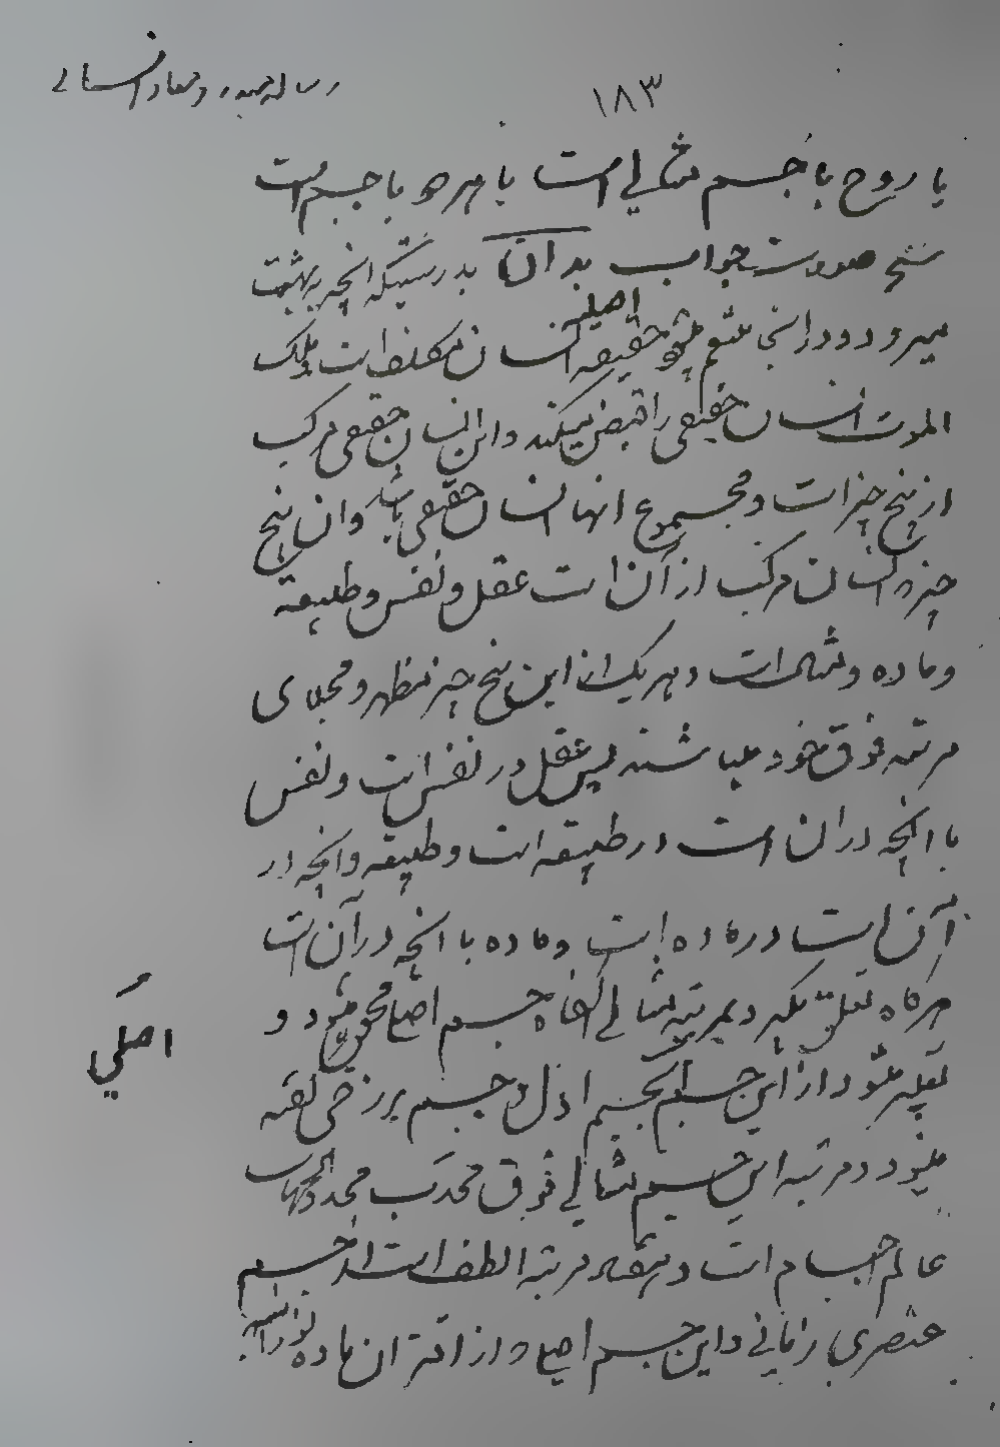 رساله مبدء و معاد انسانی
۱۸۳
یا روح با جسم مثالی است یا بهر دو با جسم است
شرح صورت جواب بدانکه بدرستیکه انچه به بهشت
میرود و در انجا متنعم میشود حقیقه اصلیه انسان مکلف است و ملک
الموت انسان حقیقی را قبض میکند و این انسان حقیقی مرکب
از پنج چیز است و مجموع انها انسان حقیقی باشد و ان پنج
چیز که انسان مرکب از آن است عقل و نفس و طبیعة
و ماده و مثال است و هر یک از این پنج چیز مظهر و مجلای
مرتبه فوق خود میباشند پس عقل در نفس است و نفس
با انچه در ان است در طبیعه است و طبیعه و انچه در
آن است در ماده است و ماده با انچه در آن است
هرگاه تعلق بگیرد بمرتبه مثالی انگاه جسم اصلی محقق میشود و
تعبیر میشود از این جسم بجسم اول و جسم برزخی گفته
میشود و مرتبه این جسم مثالی فوق محدب محدد الجهات
عالم اجسام است و مرتبه الطف است از جسم
عنصری زمانی و این جسم اصلی و از اقتران ماده
اصلی